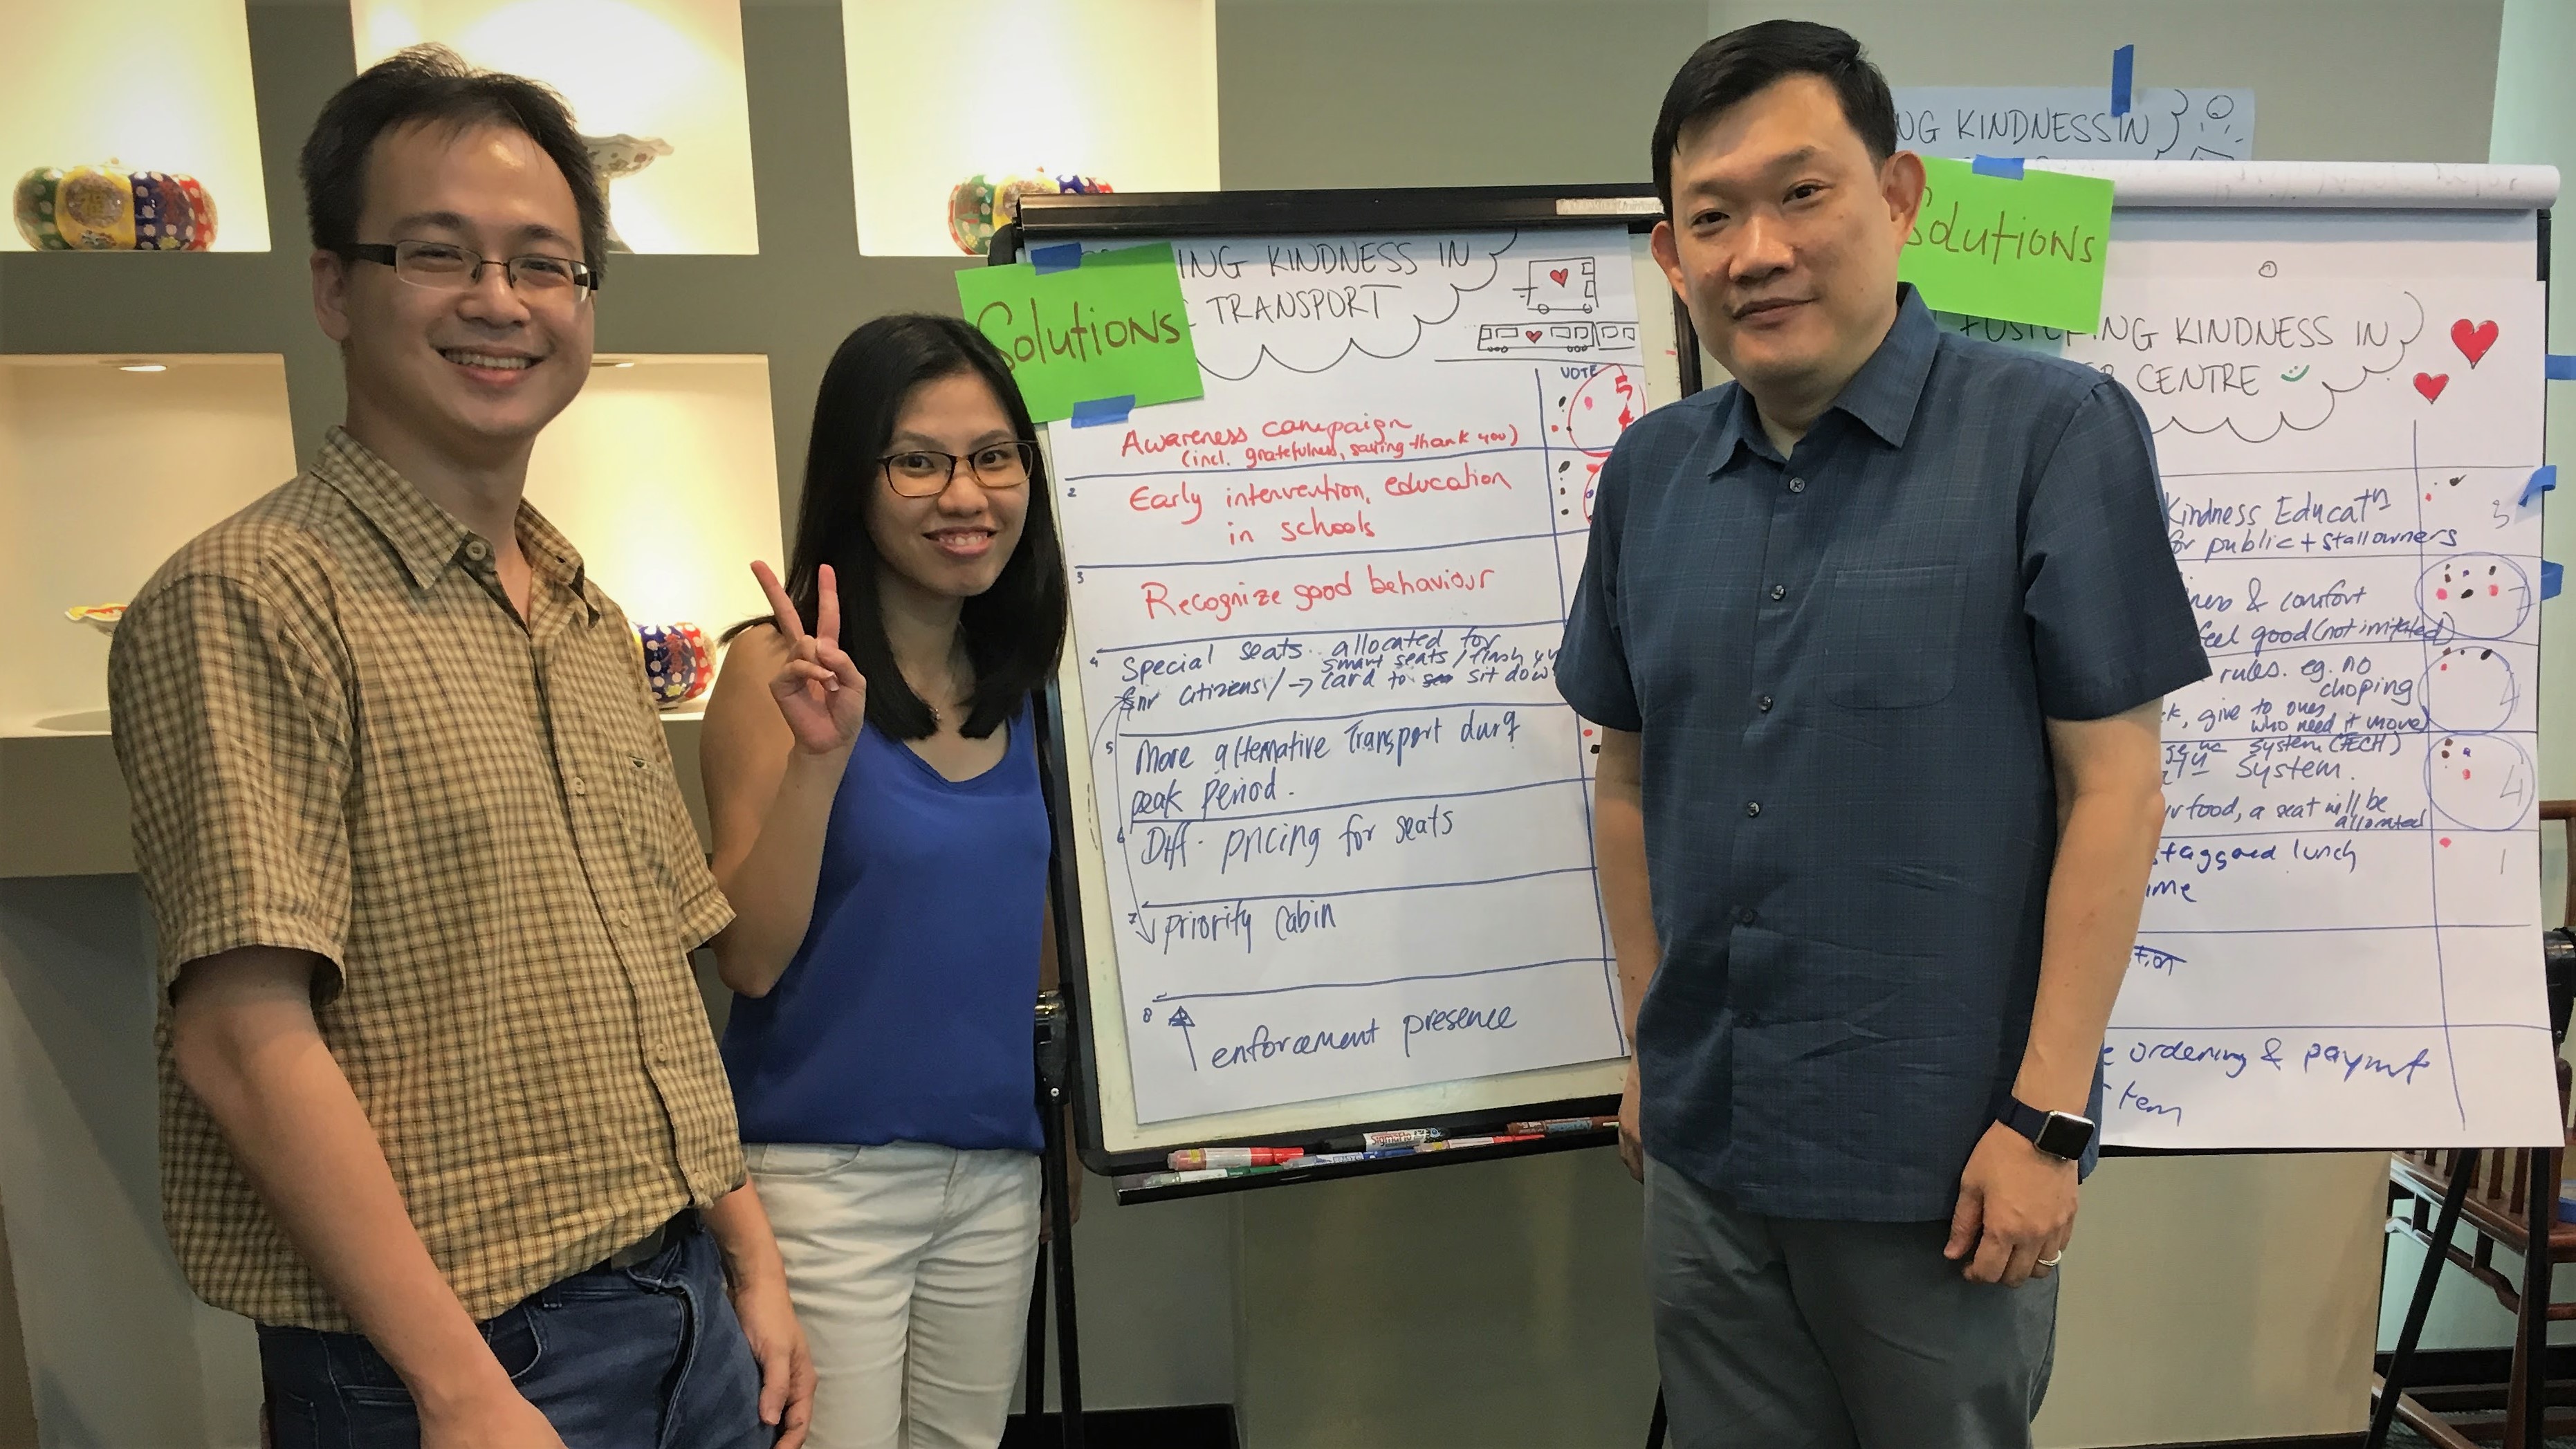 NG KINDNESS IN
Solutions
ING KINDNESS IN
TRANSPORT
VOTE
5
Awareness campaign
(incl. gratefulness, saying thank you)
2
Early intervention, education
in schools
3
Recognize good behaviour
4
Special seats allocated for
smart seats / flash
snr citizens / → card to sit down
5
More alternative Transport durg
peak period.
6
Diff. pricing for seats
7
priority cabin
8
enforcement presence
Solutions
FOSTERING KINDNESS IN
CENTRE
Kindness Educatn
for public + stallowners
3
& comfort
feel good (not irritated)
7
rules. eg. no
choping
give to ones
who need it more)
4
System (TECH)
System.
food, a seat will be
allocated
4
staggered lunch
ime
1
tion
ordering & paymt